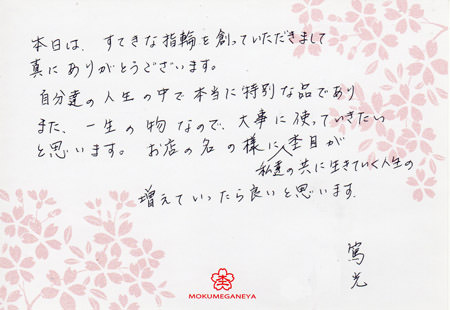 本日は、すてきな指輪を創っていただきまして
真にありがとうございます。
自分達の人生の中で本当に特別な品であり
また、一生の物なので、大事に使っていきたい
と思います。お店の名の様に、杢目が
私達の共に生きていく人生の
増えていったら良いと思います。
篤
光
MOKUMEGANEYA